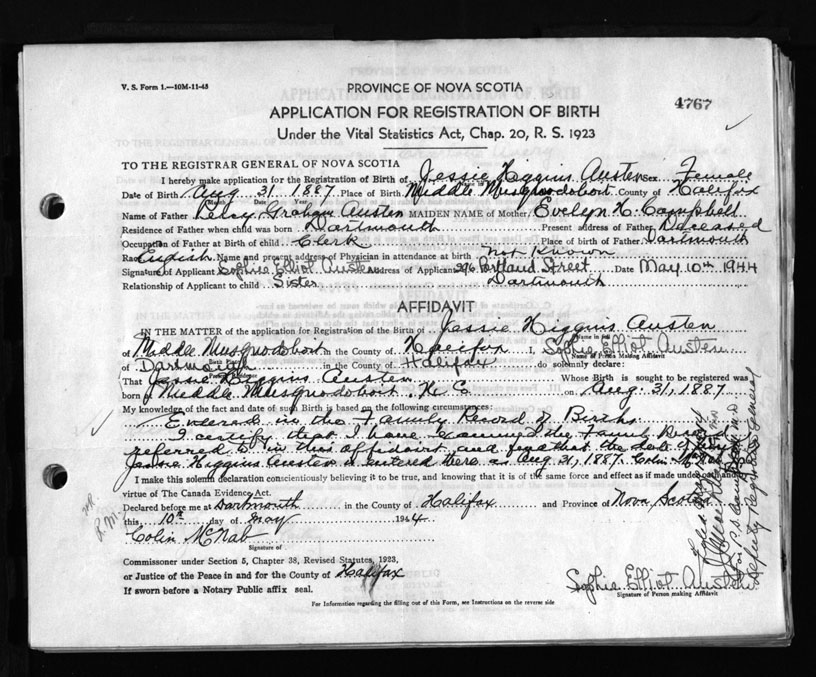 V. S. Form 1.—10M-11-43
PROVINCE OF NOVA SCOTIA
4767
APPLICATION FOR REGISTRATION OF BIRTH
Under the Vital Statistics Act, Chap. 20, R. S. 1923
TO THE REGISTRAR GENERAL OF NOVA SCOTIA
I hereby make application for the Registration of Birth of Jessie Higgins Austen Sex Female
Date of Birth Aug 31 1887 Place of Birth Middle Musquodoboit County of Halifax
Name of Father Percy Graham Austen MAIDEN NAME of Mother Evelyn H. Campbell
Residence of Father when child was born Dartmouth Present address of Father Deceased
Occupation of Father at Birth of child Clerk Place of birth of Father Dartmouth
English Name and present address of Physician in attendance at birth not Known
Signature of Applicant Sophie Elliot Austen Address of Applicant 296 Portland Street Date May 10th 1944
Relationship of Applicant to child Sister Dartmouth
AFFIDAVIT
IN THE MATTER of the application for Registration of the Birth of Jessie Higgins Austen
of Middle Musquodoboit in the County of Halifax I, Sophie Elliot Austen
Name of Person Making Affidavit
of Dartmouth in the County of Halifax do solemnly declare:
That Jessie Higgins Austen Whose Birth is sought to be registered was
born at Middle Musquodoboit, H. C. on Aug. 31, 1887
My knowledge of the fact and date of such Birth is based on the following circumstances:
Entered in the Family Record of Births
I certify that I have examined the Family Record
referred to in this affidavit, and find that the date of
Jessie Higgins Austen is entered there as Aug 31, 1887. Colin McNab
I make this solemn declaration conscientiously believing it to be true, and knowing that it is of the same force and effect as if made under Oath and by
virtue of The Canada Evidence Act.
Declared before me at Dartmouth in the County of Halifax and Province of Nova Scotia
this 10th day of May 1944.
Colin McNab
Signature of
Commissioner under Section 5, Chapter 38, Revised Statutes, 1923,
or Justice of the Peace in and for the County of Halifax
If sworn before a Notary Public affix seal.
Sophie Elliot Austen
Signature of Person making Affidavit
For Information regarding the filling out of this Form, see Instructions on the reverse side
Deputy Registrar General